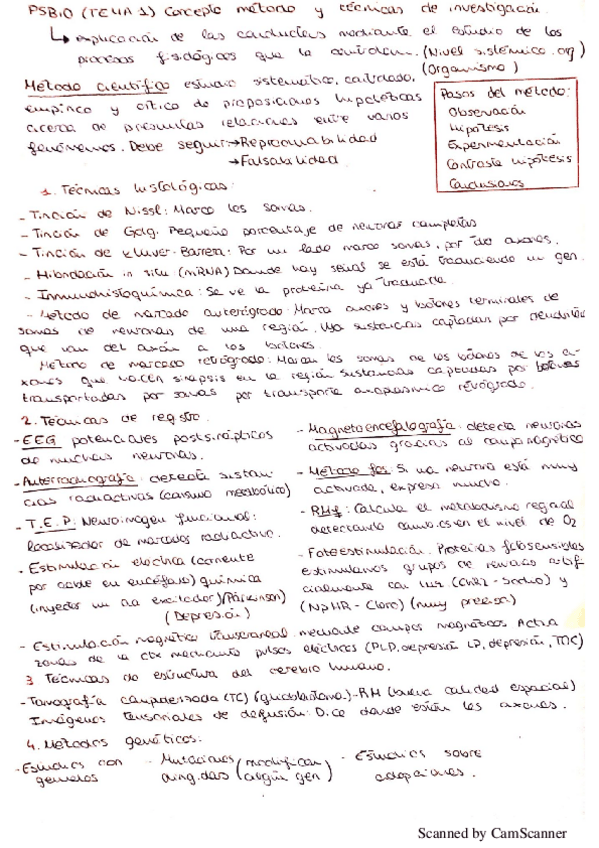 PSBIO (TEMA 1) Concepto método y técnicas de investigación.
↳ explicación de las conductas mediante el estudio de los
procesos fisiológicos que la controlan. (Nivel sistémico. org)
(Organismo)
Método científico estudio sistemático, controlado,
empírico y crítico de proposiciones hipotéticas
acerca de presuntas relaciones entre varios
fenómenos. Debe seguir → Reproducibilidad
→ Falsabilidad
Pasos del método:
Observación
Hipótesis
Experimentación
Contraste hipótesis
Conclusiones
1. Técnicas histológicas:
- Tinción de Nissl: Marca los somas.
- Tinción de Golgi. Pequeño porcentaje de neuronas completas
- Tinción de Kluver-Barrera: Por un lado marca somas, por otro axones.
- Hibridación in situ (mRNA) Donde hay señas se está traduciendo un gen.
- Inmunohistoquímica: Se ve la proteína ya traducida.
- Método de marcado anterógrado: Marca axones y botones terminales de
somas de neuronas de una región. Usa sustancias captadas por dendritas
que van del axón a los botones.
Método de marcado retrógrado: Marcan los somas de los botones de los a-
xones que hacen sinapsis en la región sustancias captadas por botones
transportadas por somas por transporte axoplásmico retrógrado.
2. Técnicas de registro.
- EEG potenciales postsinápticos
de muchas neuronas.
- Autorradiografía: detecta sustan-
cias radiactivas (consumo metabólico)
- T.E.P: Neuroimagen funcional:
localizador de marcador radiactivo.
- Estimulación eléctrica (corriente
por cable en encéfalo) química
(inyectar un aa excitador) (Parkinson)
(Depresión)
- Magnetoencefalografía: detecta neuronas
activadas gracias al campo magnético
- Método fos: Si una neurona está muy
activada, expresa mucho.
- RMf: Calcula el metabolismo regional
detectando cambios en el nivel de O2
- Fotoestimulación. Proteínas fotosensibles
estimulamos grupos de neuronas artif
icialmente con luz (ChR2 - Sodio) y
(NpHR - Cloro) (muy precisa)
- Estimulación magnética transcraneal: mediante campos magnéticos Activa
zonas de la ctx mediante pulsos eléctricos (PLP, depresión LP, depresión, TOC)
3 Técnicas de estructura del cerebro humano.
- Tomografía computerizada (TC) (glioblastoma) - RM (buena calidad espacial)
Imágenes tensoriales de difusión: Dice donde están los axones.
4. Métodos genéticos:
- Estudios con
gemelos
- Mutaciones
dirigidas (modifican
algún gen)
- Estudios sobre
adopciones.
Scanned by CamScanner